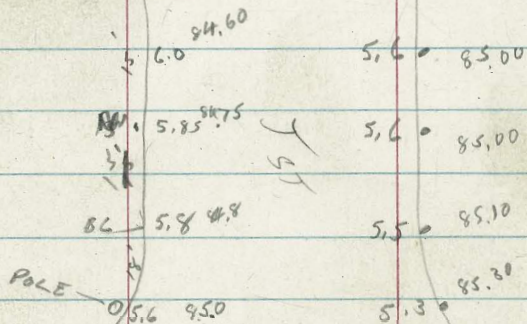 84.60
6.0 5,6 85,00
5,85 84.75 5,6 85,00
BC 5,8 84.8 5,5 85.10
18'
POLE 0 5,6 85.0 5,3 85.30